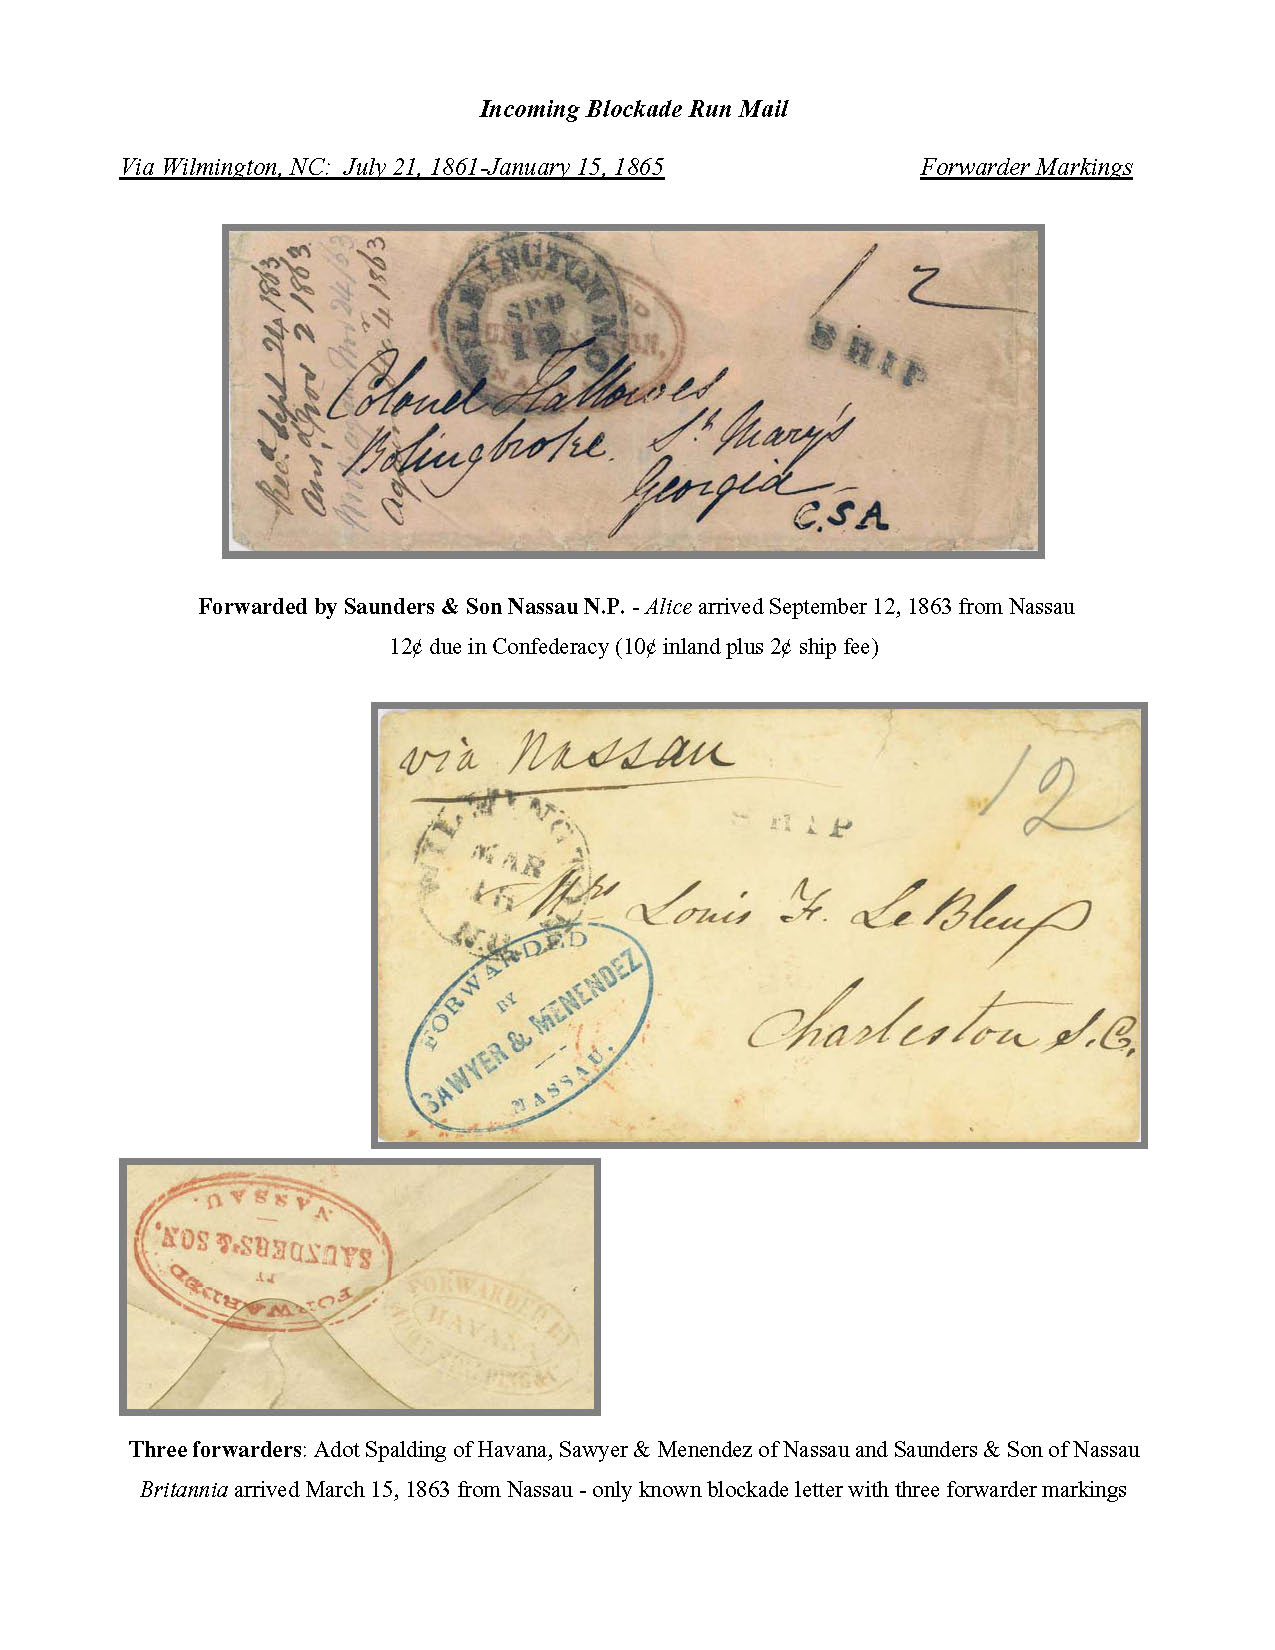 Incoming Blockade Run Mail
Via Wilmington, NC: July 21, 1861-January 15, 1865
Forwarder Markings
Rec.d Sept 24 1863
Ansd Nov 2 1863
Nov 24/63
Again 4 1863
WILMINGTON N.C.
SEP
12
SHIP
Colonel Hallowes
Bolingbroke. St. Mary's
Georgia
C.S.A
Forwarded by Saunders & Son Nassau N.P. - Alice arrived September 12, 1863 from Nassau
12¢ due in Confederacy (10¢ inland plus 2¢ ship fee)
via Nassau
12
SHIP
WILMINGTON
MAR
N.C.
Mrs Louis F. LeBleux
Charleston S.C.
FORWARDED
BY
SAWYER & MENENDEZ
NASSAU.
FORWARDED
BY
SAUNDERS & SON.
NASSAU.
FORWARDED BY
HAVANA
Three forwarders: Adot Spalding of Havana, Sawyer & Menendez of Nassau and Saunders & Son of Nassau
Britannia arrived March 15, 1863 from Nassau - only known blockade letter with three forwarder markings